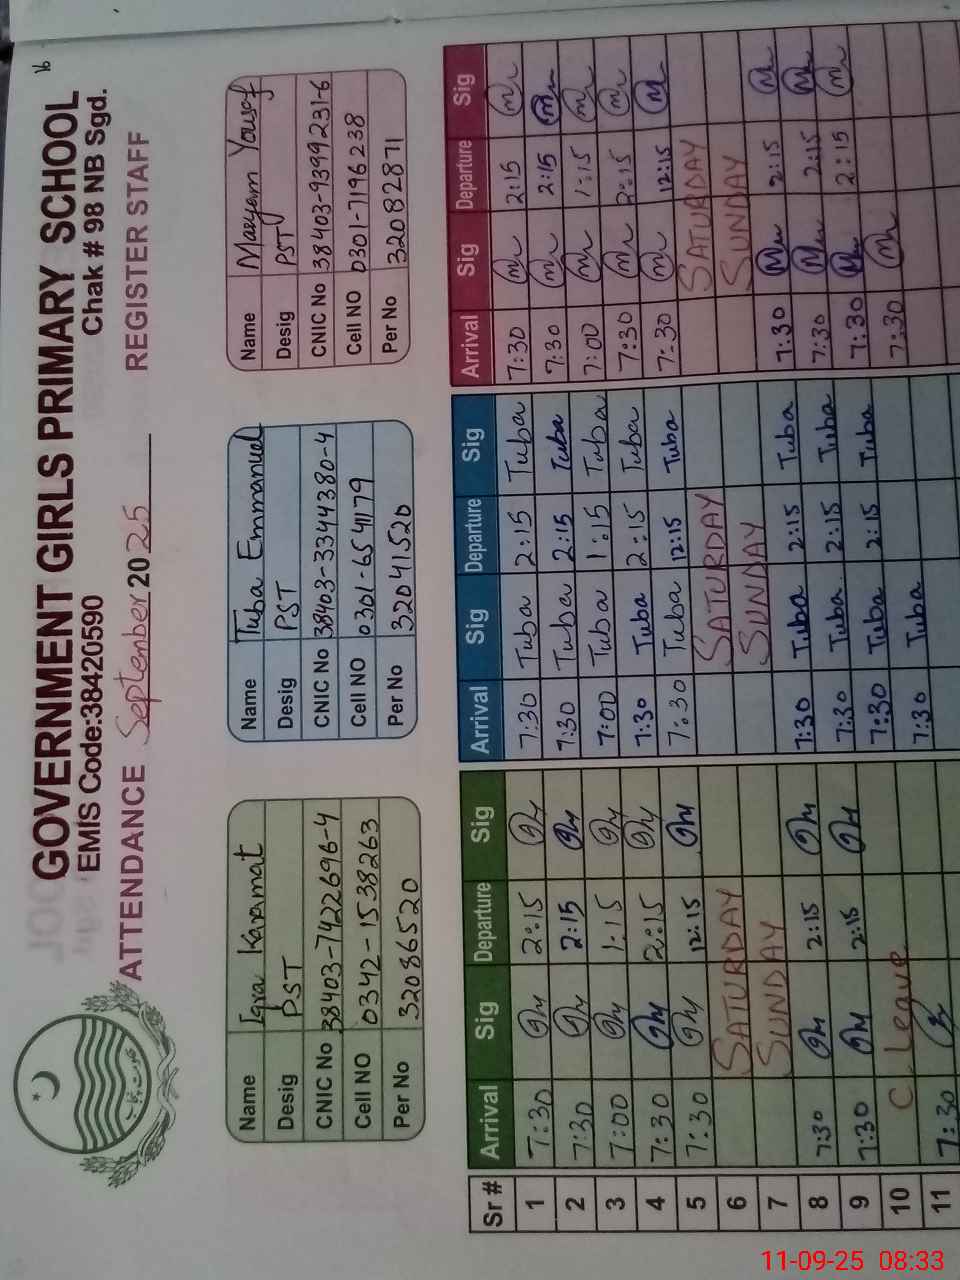 16
GOVERNMENT GIRLS PRIMARY SCHOOL
EMIS Code:38420590 Chak # 98 NB Sgd.
ATTENDANCE September 2025 REGISTER STAFF
Name Iqra Karamat
Desig PST
CNIC No 38403-7422696-4
Cell NO 0342-1538263
Per No 32086520
Name Tuba Emmanuel
Desig PST
CNIC No 38403-3344380-4
Cell NO 0301-6541179
Per No 32041520
Name Maryam Yousaf
Desig PST
CNIC No 38403-9399231-6
Cell NO 0301-7196238
Per No 32082871
Sr # Arrival Sig Departure Sig Arrival Sig Departure Sig Arrival Sig Departure Sig
1 7:30 2:15 7:30 Tuba 2:15 Tuba 7:30 2:15
2 7:30 2:15 7:30 Tuba 2:15 Tuba 7:30 2:15
3 7:00 1:15 7:00 Tuba 1:15 Tuba 7:00 1:15
4 7:30 2:15 7:30 Tuba 2:15 Tuba 7:30 2:15
5 7:30 12:15 7:30 Tuba 12:15 Tuba 7:30 12:15
6 SATURDAY SATURDAY SATURDAY
7 SUNDAY SUNDAY SUNDAY
8 7:30 2:15 7:30 Tuba 2:15 Tuba 7:30 2:15
9 7:30 2:15 7:30 Tuba 2:15 Tuba 7:30 2:15
10 C Leave 7:30 Tuba 2:15 Tuba 7:30 2:15
11 7:30 7:30 Tuba 7:30
11-09-25 08:33